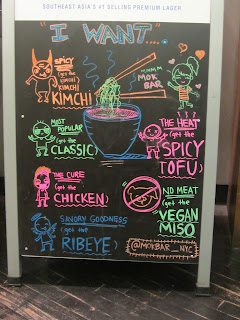 SOUTHEAST ASIA'S #1 SELLING PREMIUM LAGER
"I WANT"....
SPICY
(get the
special
KIMCHI)
KIMCHI
MMMM
MOK
BAR
MOST
POPULAR
(get the
CLASSIC)
THE HEAT
(get the
SPICY
TOFU)
THE CURE
(get the
CHICKEN)
NO MEAT
(get the
VEGAN
MISO
SAVORY GOODNESS
(get the
RIBEYE)
@MOKBAR_NYC